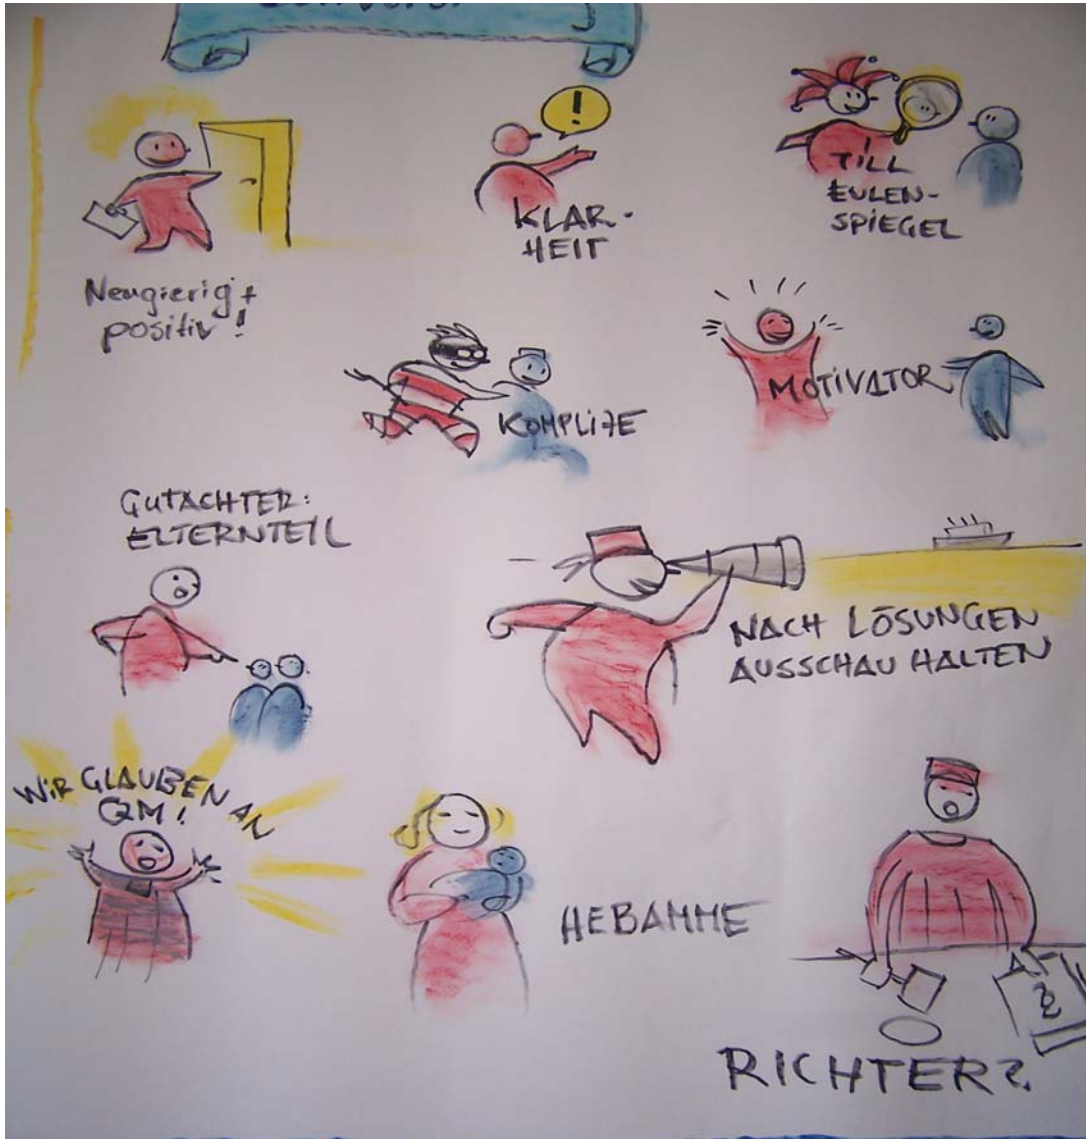 !
Neugierig +
positiv!
KLAR-
HEIT
TILL
EULEN-
SPIEGEL
KOMPLIZE
MOTIVATOR
GUTACHTER:
ELTERNTEIL
NACH LÖSUNGEN
AUSSCHAU HALTEN
WIR GLAUBEN AN
QM!
HEBAMME
RICHTER?